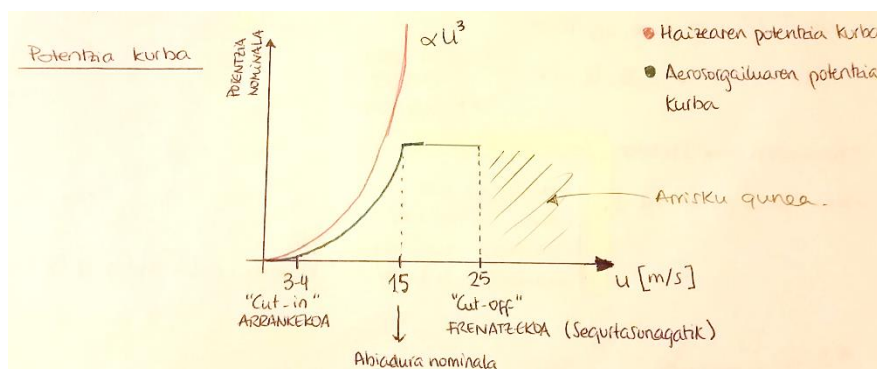 Potentzia kurba
POTENTZIA
NOMINALA
∝U³
Haizearen potentzia kurba
Aerosorgailuaren potentzia
kurba
Arrisku gunea.
3-4
15
25
u [m/s]
"Cut-in"
ARRANKEKOA
"Cut-off"
FRENATZEKOA (Segurtasunagatik)
Abiadura nominala